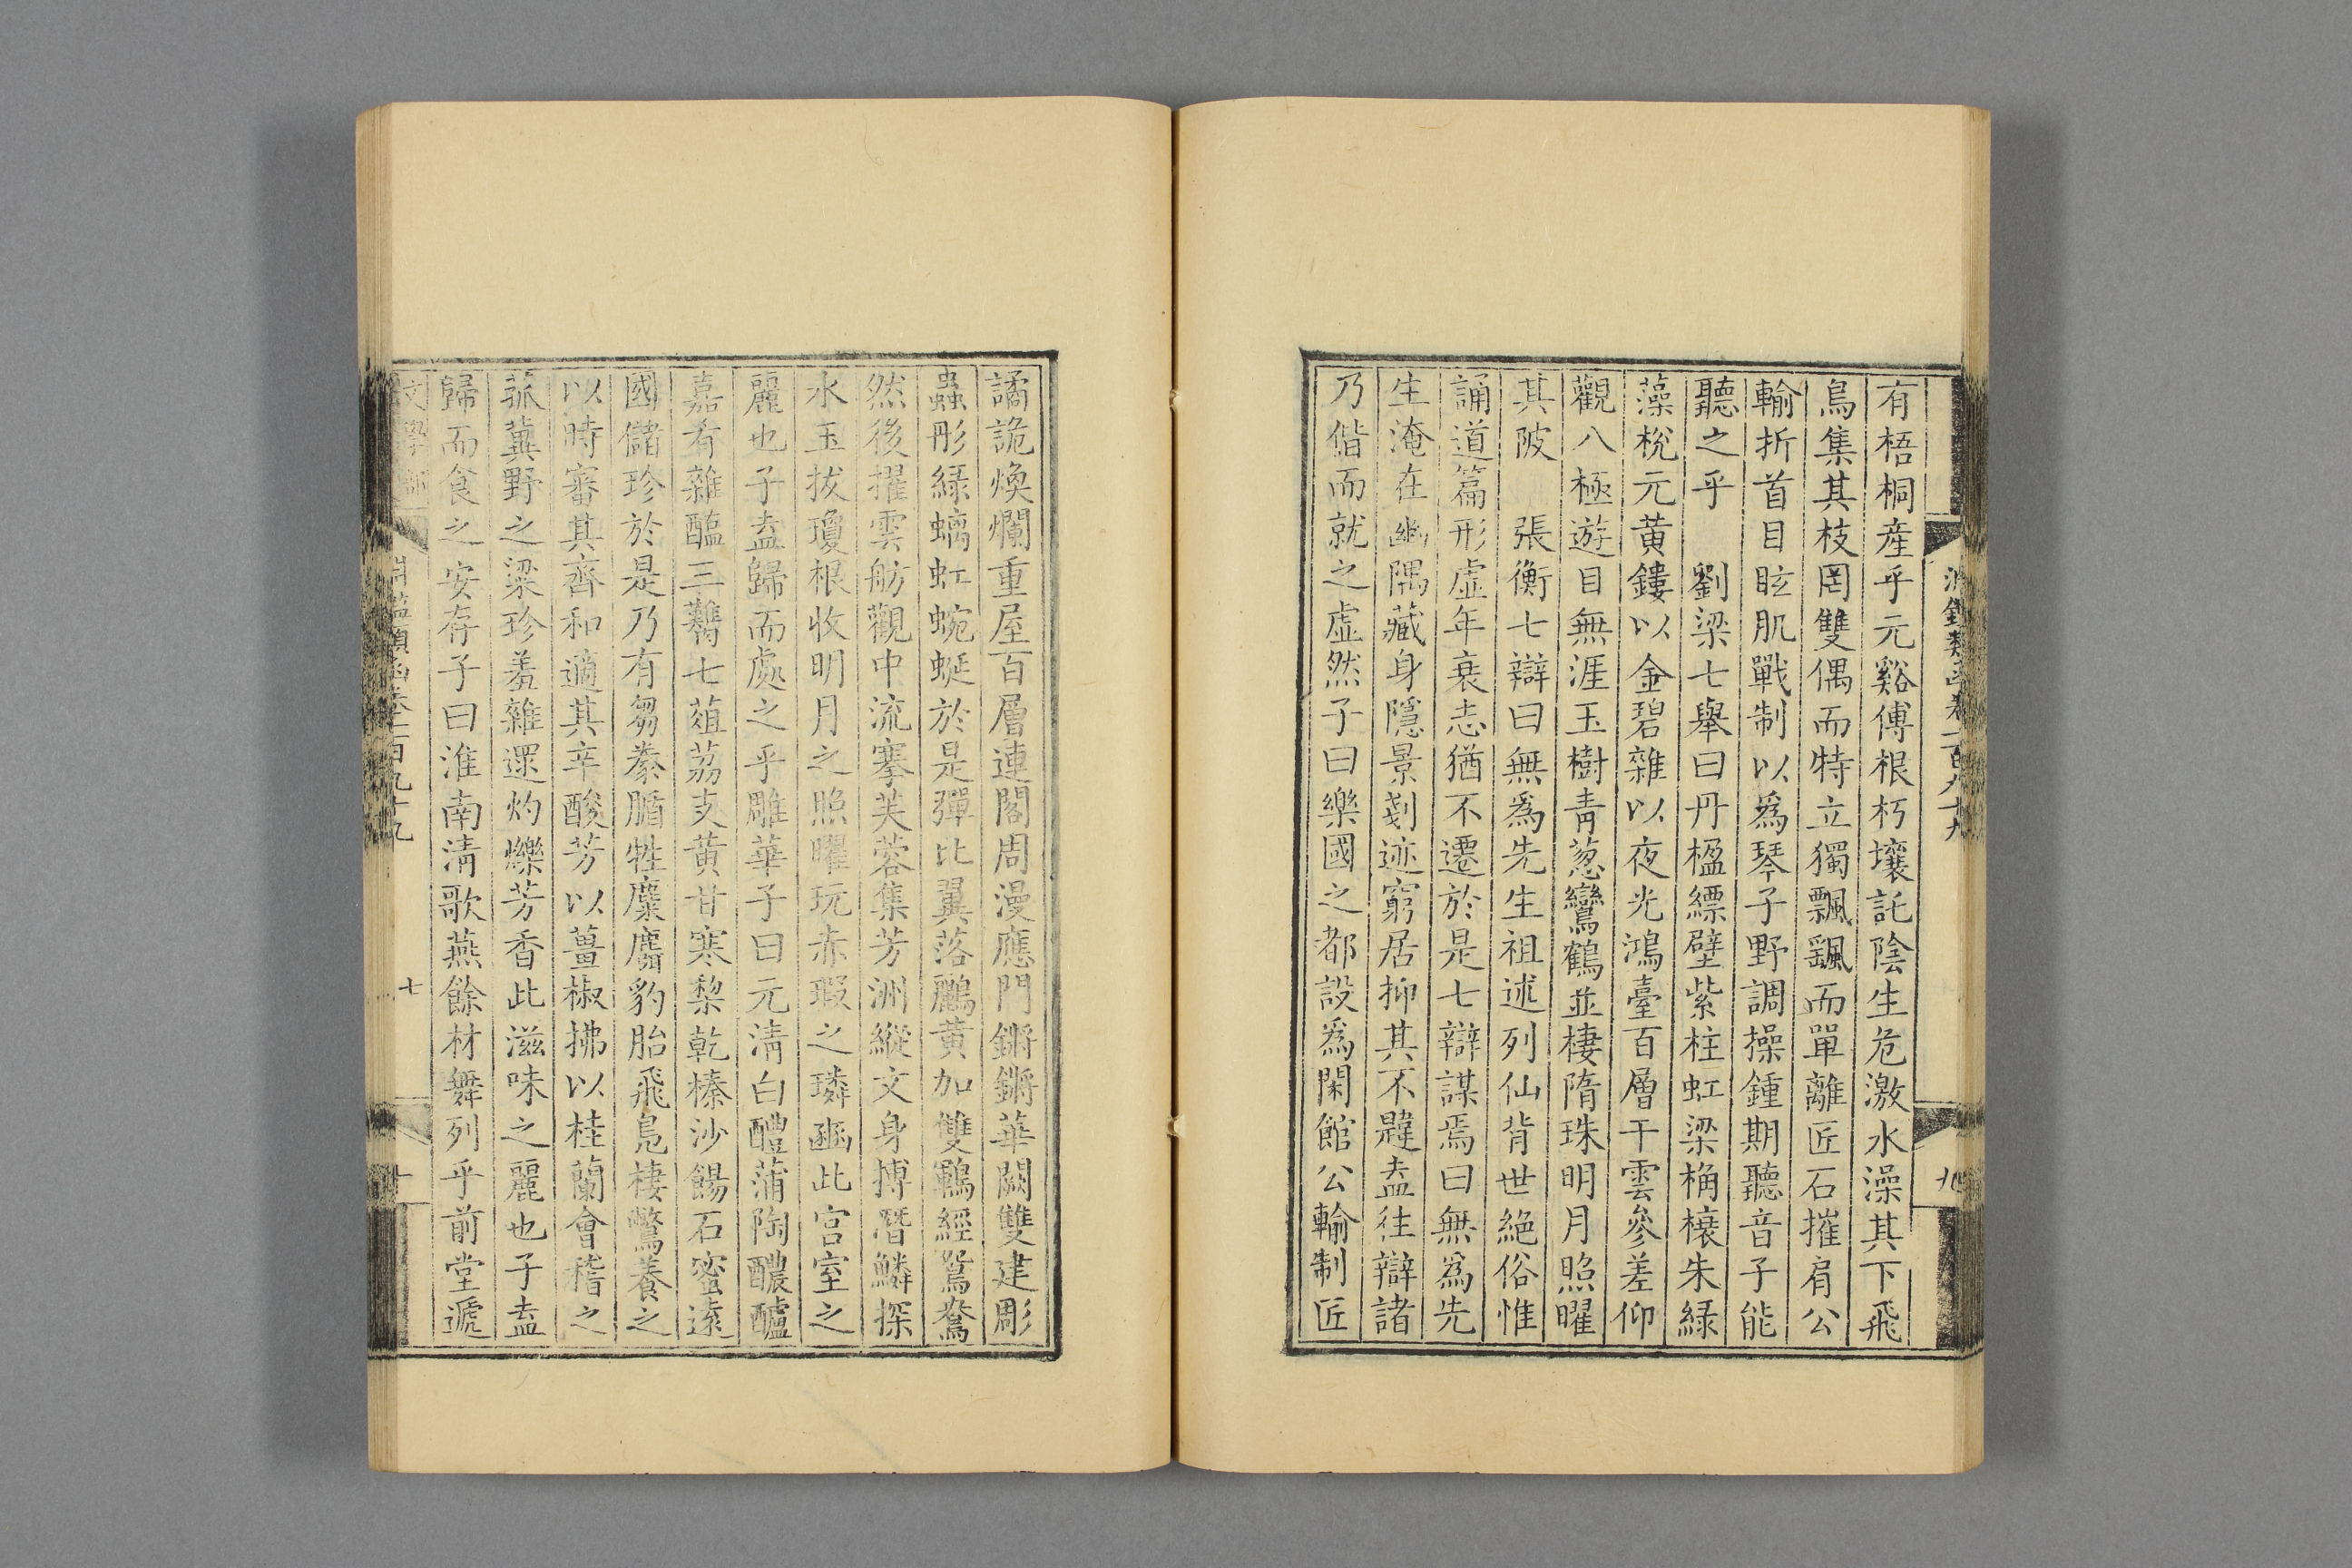 有梧桐産乎元谿傅根朽壤託陰生危激水澡其下飛
鳥集其枝罔雙偶而特立獨飄颻而單離匠石摧肩公
輸折首目眩肌戰制以爲琴子野調操鍾期聽音子能
聽之乎　劉梁七舉曰丹楹縹壁紫柱虹梁桷榱朱綠
藻梲元黃鏤以金碧雜以夜光鴻臺百層干雲參差仰
觀八極遊目無涯玉樹青葱鸞鶴並棲隋珠明月照曜
其陂　張衡七辯曰無爲先生祖述列仙背世絶俗惟
誦道篇形虛年衰志猶不遷於是七辯謀焉曰無爲先
生淹在幽隅藏身隱景剗迹窮居抑其不韙盍往辯諸
乃偕而就之虛然子曰樂國之都設爲閑館公輸制匠
譎詭煥爛重屋百層連閣周漫應門鏘鏘華闕雙建彫
蟲彤綠螭虹蜿蜒於是彈比翼落鸝黃加雙鶤經鴛鴦
然後擢雲舫觀中流搴芙蓉集芳洲縱文身搏潛鱗探
水玉拔瓊根收明月之照曜玩赤瑕之璘豳此宮室之
麗也子盍歸而處之乎雕華子曰元清白醴蒲陶醲醽
嘉肴雜醢三臡七菹荔支黃甘寒梨乾榛沙餳石蜜遠
國儲珍於是乃有芻豢腯牲麋麛豹胎飛鳧棲鷩養之
以時審其齊和適其辛酸芳以薑椒拂以桂蘭會稽之
菰冀野之粱珍羞雜遝灼爍芳香此滋味之麗也子盍
歸而食之安存子曰淮南清歌燕餘材舞列乎前堂遞
七